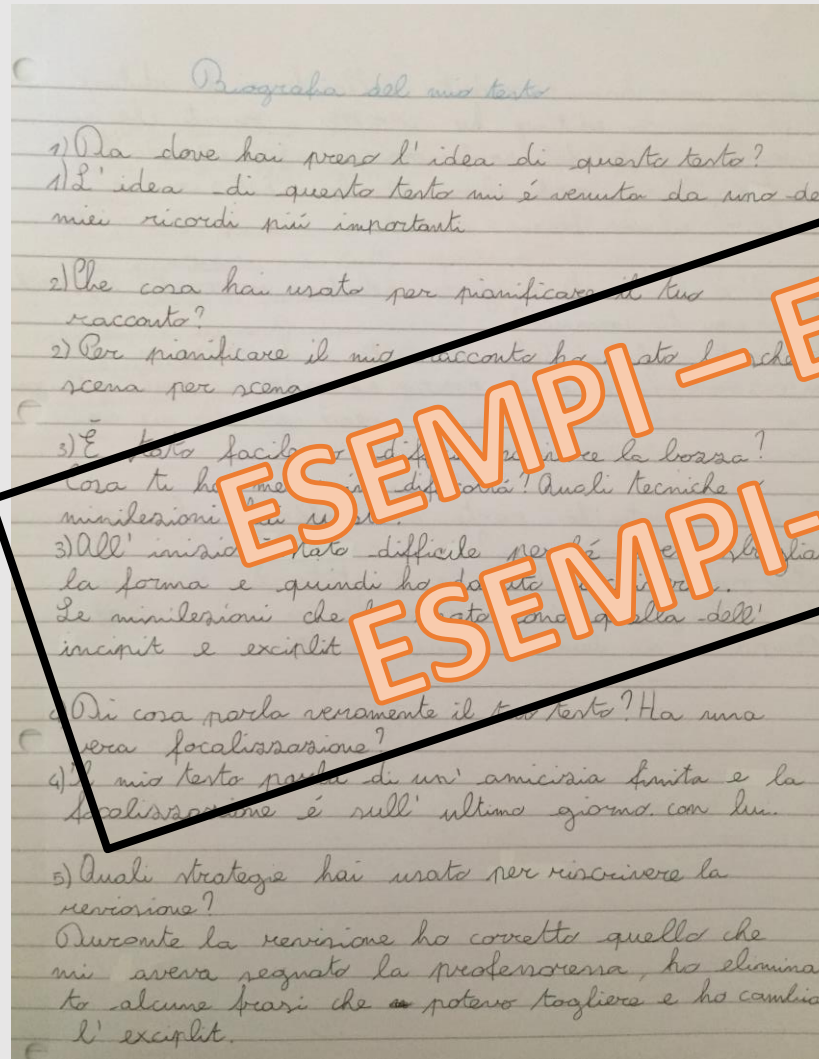 Biografia del mio testo
1) Da dove hai preso l'idea di questo testo?
1) L'idea di questo testo mi é venuta da uno de
miei ricordi piú importanti
2) Che cosa hai usato per pianificare il tuo
racconto?
2) Per pianificare il mio racconto ho
scena per scena
3) É facile o la bozza?
Cosa ti ha in difficoltá? Quali tecniche
minilezioni
3) All' inizio difficile perché
la forma e quindi ho
Le minilezioni che quella dell'
incipit e exciplit
4) Di cosa parla veramente il tuo testo? Ha una
vera focalizzazione?
4) Il mio testo parla di un' amicizia finita e la
focalizzazione é sull' ultimo giorno. con lui.
5) Quali strategie hai usato per riscrivere la
revisione?
Durante la revisione ho corretto quello che
mi aveva segnato la professoressa, ho elimina
to alcune frasi che potevo togliere e ho cambia
l' exciplit.
ESEMPI – E
ESEMPI-